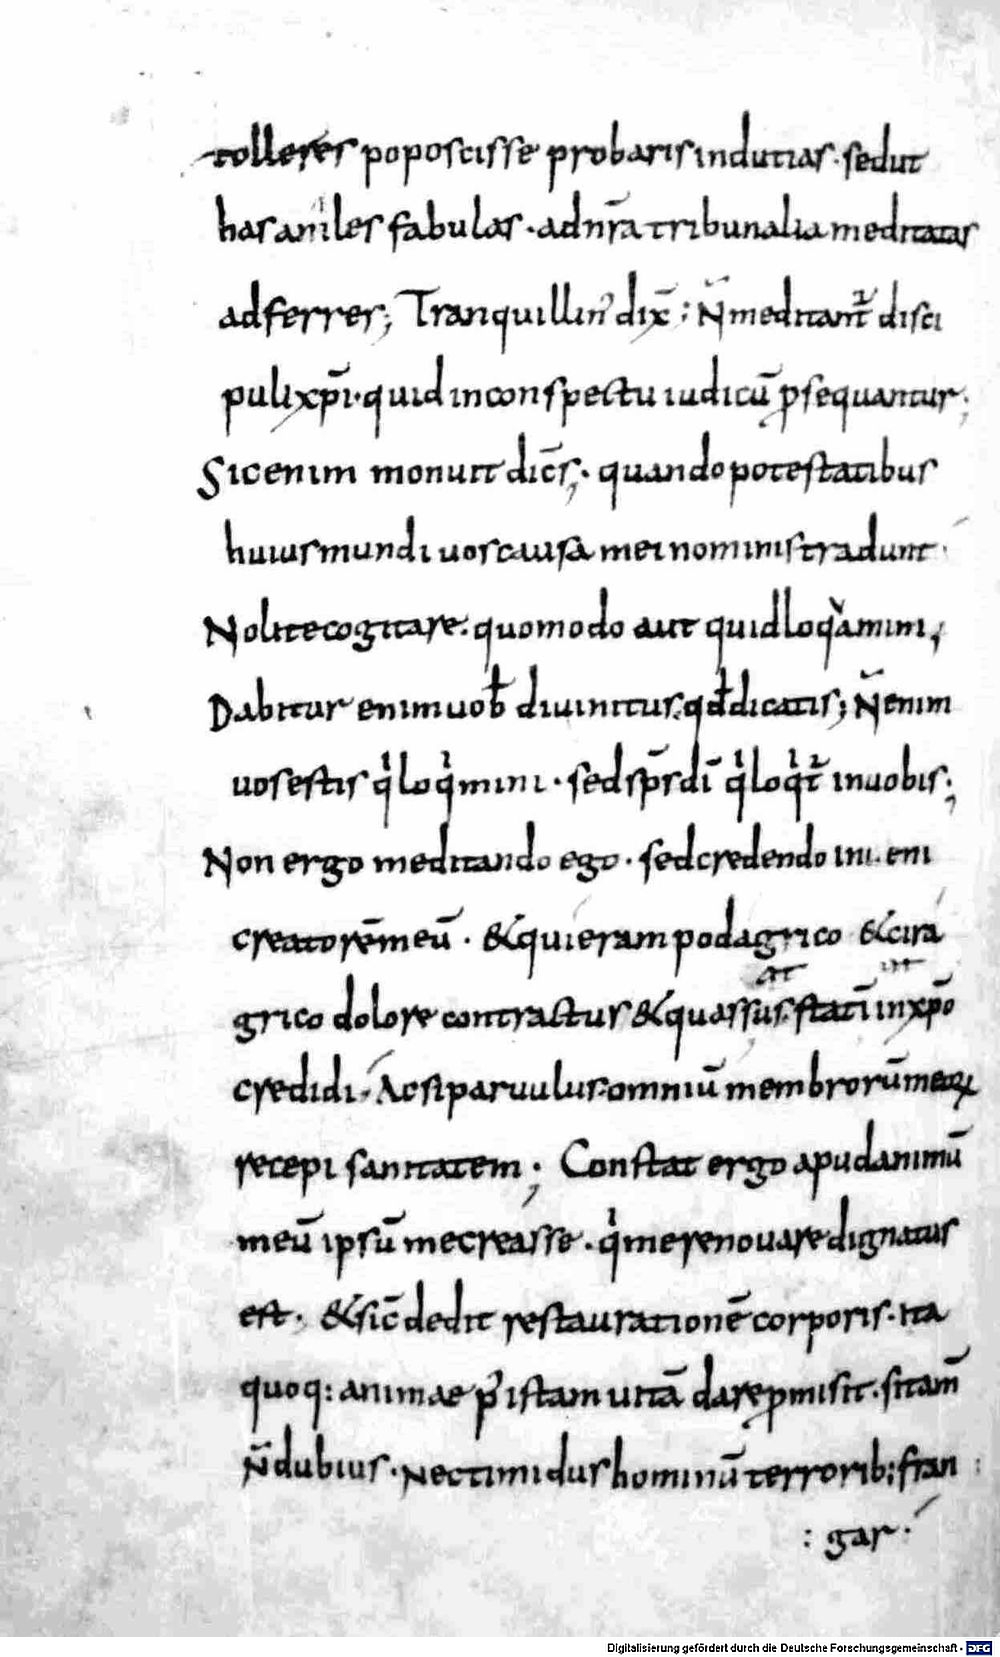 tolleres poposcisse probaris indutias · sed ut
has aniles fabulas · ad nr̄a tribunalia meditatas
adferres; Tranquillin᾽ dix̄ : N̄ meditant᷑ disci
puli xp̄i · quid in conspectu iudicū p̱sequantur;
Sic enim monuit dicēs; · quando potestatibus
huius mundi uos causa mei nominis tradunt ·
Nolite cogitare · quomodo aut quid loqͣmini;
Dabitur enim uob̄ diuinitus · qđ dicatis; N̄ enim
uos estis qͥ loqͥmini · sed sp̄s dī qͥ loqͥt᷑ in uobis;
Non ergo meditando ego · sed credendo inueni
creatorē meū · & qui eram podagrico & cira
grico dolore contractus & quassus · statī in xp̄o
credidi · Ac si paruulus · omniū membrorū meoꝝ
recepi sanitatem; Constat ergo apud animū
meū ipsū me creasse · qͥ me renouare dignatus
est · & sic̄ dedit restaurationē corporis · ita
quoq: animae p᾽ istam uitā dare p̱misit · si tam̄
n̄ dubius · nec timidus hominū terrorib; fran :
: gar ·
Digitalisierung gefördert durch die Deutsche Forschungsgemeinschaft - DFG